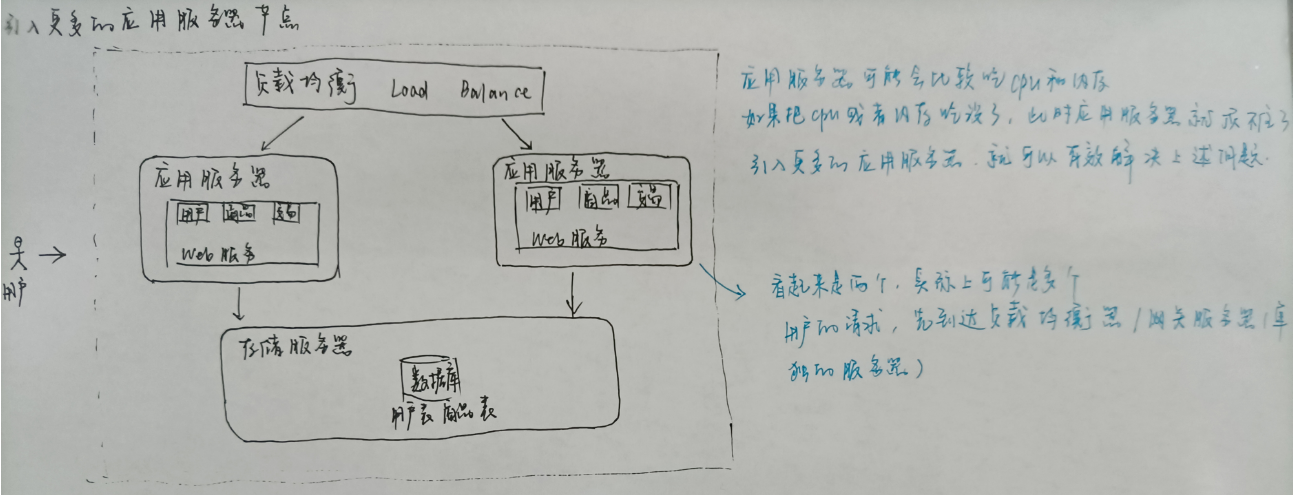 引入更多的应用服务器节点
负载均衡 Load Balance
应用服务器
用户 商品 交易
Web 服务
应用服务器
用户 商品 交易
Web 服务
用户
存储服务器
数据库
用户表 商品表
应用服务器可能会比较吃cpu和内存
如果把cpu或者内存吃没了，此时应用服务器就顶不住了
引入更多的应用服务器，就可以有效解决上述问题.
看起来是两个，实际上可能是多个
用户的请求，先到达负载均衡器/网关服务器(单
独的服务器)